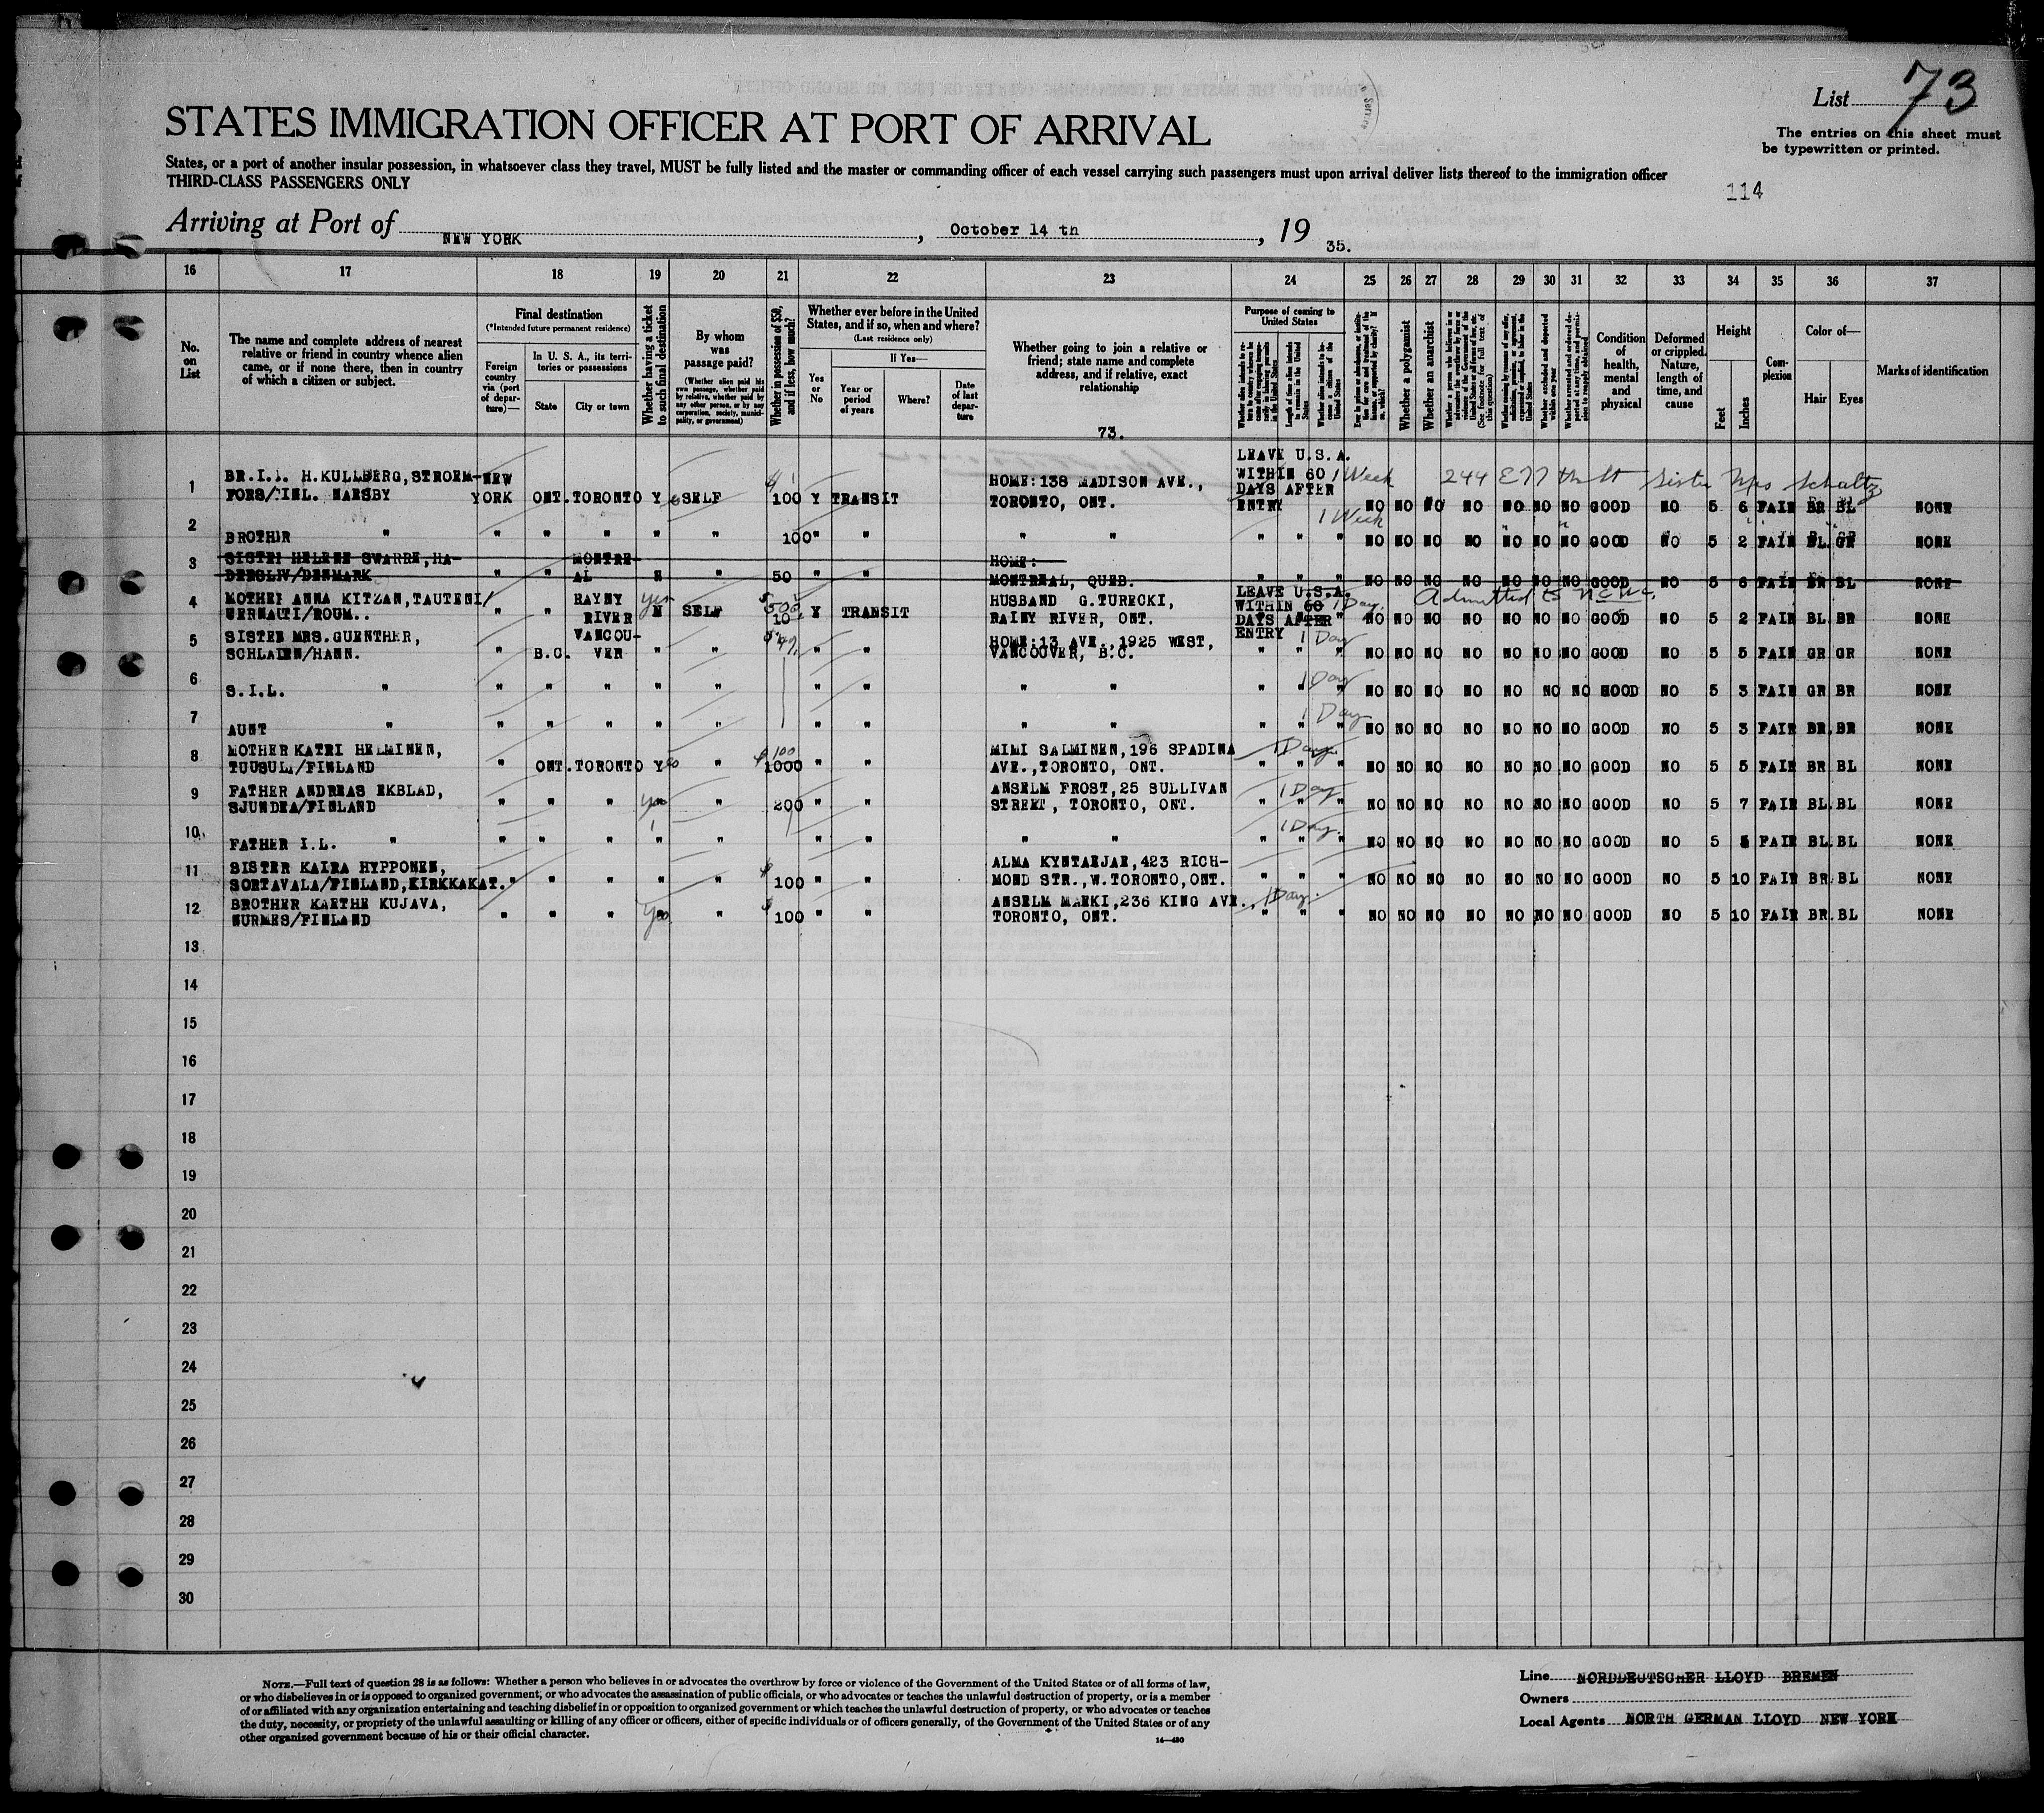 List 73
STATES IMMIGRATION OFFICER AT PORT OF ARRIVAL
The entries on this sheet must
be typewritten or printed.
States, or a port of another insular possession, in whatsoever class they travel, MUST be fully listed and the master or commanding officer of each vessel carrying such passengers must upon arrival deliver lists thereof to the immigration officer
THIRD-CLASS PASSENGERS ONLY
114
Arriving at Port of NEW YORK, October 14 th, 19 35.
16 17 18 19 20 21 22 23 24 25 26 27 28 29 30 31 32 33 34 35 36 37
No. on List
The name and complete address of nearest relative or friend in country whence alien came, or if none there, then in country of which a citizen or subject.
Final destination
(*Intended future permanent residence)
Foreign country via (port of departure)—
In U. S. A., its territories or possessions
State
City or town
Whether having a ticket to such final destination
By whom was passage paid?
(Whether alien paid his own passage, whether paid by relative, whether paid by any other person, or by any corporation, society, municipality, or government)
Whether in possession of $50, and if less, how much?
Whether ever before in the United States, and if so, when and where?
(Last residence only)
If Yes—
Yes or No
Year or period of years
Where?
Date of last departure
Whether going to join a relative or friend; state name and complete address, and if relative, exact relationship
73.
Purpose of coming to United States
Whether a polygamist
Whether an anarchist
Condition of health, mental and physical
Deformed or crippled. Nature, length of time, and cause
Height
Feet
Inches
Complexion
Color of—
Hair
Eyes
Marks of identification
1 BR.I.L. H.KULLBERG,STROEM- NEW HOME:138 MADISON AVE., LEAVE U.S.A. WITHIN 60 1 Week 244 E 77 th St Sister Mrs Schultz
FORS/ YORK ONT. TORONTO Y SELF 100 Y TRANSIT TORONTO, ONT. DAYS AFTER ENTRY NO NO NO NO NO NO NO GOOD NO 5 6 FAIR BR BL NONE
2 BROTHER " " " " " " 100 " " " " 1 Week " " " NO NO NO NO NO NO NO GOOD NO 5 2 FAIR BL. GR NONE
3 SISTER HELENE SWARRE, HA- MONTRE- HOME:
DERSLIV/DENMARK " " AL N " 50 " " MONTREAL, QUEB. " " " NO NO NO NO NO NO NO GOOD NO 5 6 FAIR BR BL NONE
4 MOTHER ANNA KITZAN, TAUTENI/ RAYNY yes 500 HUSBAND G.TURECKI, LEAVE U.S.A. WITHIN 60 1 Day. Admitted
CERNAUTI/ROUM.. " " RIVER N SELF 10 Y TRANSIT RAINY RIVER, ONT. DAYS AFTER ENTRY NO NO NO NO NO NO NO GOOD NO 5 2 FAIR BL. BR NONE
5 SISTER MRS.GUENTHER, VANCOU- HOME:13 AVE., 1925 WEST, 1 Day
SCHLADEN/HANN. " B.C. VER " " " " VANCOUVER, B.C. " " " NO NO NO NO NO NO NO GOOD NO 5 5 FAIR GR GR NONE
6 S.I.L. " " " " " " " " " " 1 Day " " " NO NO NO NO NO NO NO GOOD NO 5 3 FAIR GR BR NONE
7 AUNT " " " " " " " " " " 1 Day " " " NO NO NO NO NO NO NO GOOD NO 5 3 FAIR BR. BR NONE
8 MOTHER KATRI HELMINEN, $ 100 MIMI SALMINEN, 196 SPADINA 1 Day
TUUSULA/FINLAND " ONT. TORONTO Y " 1000 " " AVE., TORONTO, ONT. " " " NO NO NO NO NO NO NO GOOD NO 5 5 FAIR BR BL NONE
9 FATHER ANDREAS EKBLAD, ANSELM FROST, 25 SULLIVAN 1 Day
SJUNDEA/FINLAND " " " yes " 200 " " STREET, TORONTO, ONT. " " " NO NO NO NO NO NO NO GOOD NO 5 7 FAIR BL. BL NONE
10 FATHER I.L. " " " " " " " " " " 1 Day. " " " NO NO NO NO NO NO NO GOOD NO 5 FAIR BL. BL NONE
11 SISTER KAIRA HYPPONEN, ALMA KYNTAEJAE, 423 RICH-
SORTAVALA/FINLAND, KIRKKAKAT. " " " " " 100 " " MOND STR., W.TORONTO, ONT. " " " NO NO NO NO NO NO NO GOOD NO 5 10 FAIR BR. BL NONE
12 BROTHER KAETHE KUJAVA, ANSELM MAEKI, 236 KING AVE., 1 Day.
NURMES/FINLAND " " " yes " 100 " " TORONTO, ONT. " " " NO NO NO NO NO NO NO GOOD NO 5 10 FAIR BR. BL NONE
13
14
15
16
17
18
19
20
21
22
23
24
25
26
27
28
29
30
NOTE.—Full text of question 28 is as follows: Whether a person who believes in or advocates the overthrow by force or violence of the Government of the United States or of all forms of law,
or who disbelieves in or is opposed to organized government, or who advocates the assassination of public officials, or who advocates or teaches the unlawful destruction of property, or is a member
of or affiliated with any organization entertaining and teaching disbelief in or opposition to organized government or which teaches the unlawful destruction of property, or who advocates or teaches
the duty, necessity, or propriety of the unlawful assaulting or killing of any officer or officers, either of specific individuals or of officers generally, of the Government of the United States or of any
other organized government because of his or their official character.
Line NORDDEUTSCHER LLOYD BREMEN
Owners
Local Agents NORTH GERMAN LLOYD NEW YORK